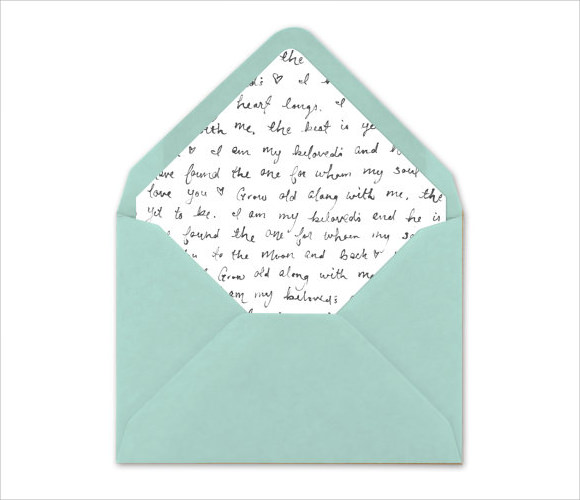 the
♡ I
heart longs. I
with me, the best is ye
♡ I am my beloved's and h
ve found the one for whom my soul
love you ♡ Grow old along with me, the
yet to be. I am my beloved's and he is
found the one for whom my so
to the moon and back ♡
Grow old along with me
am my beloved's